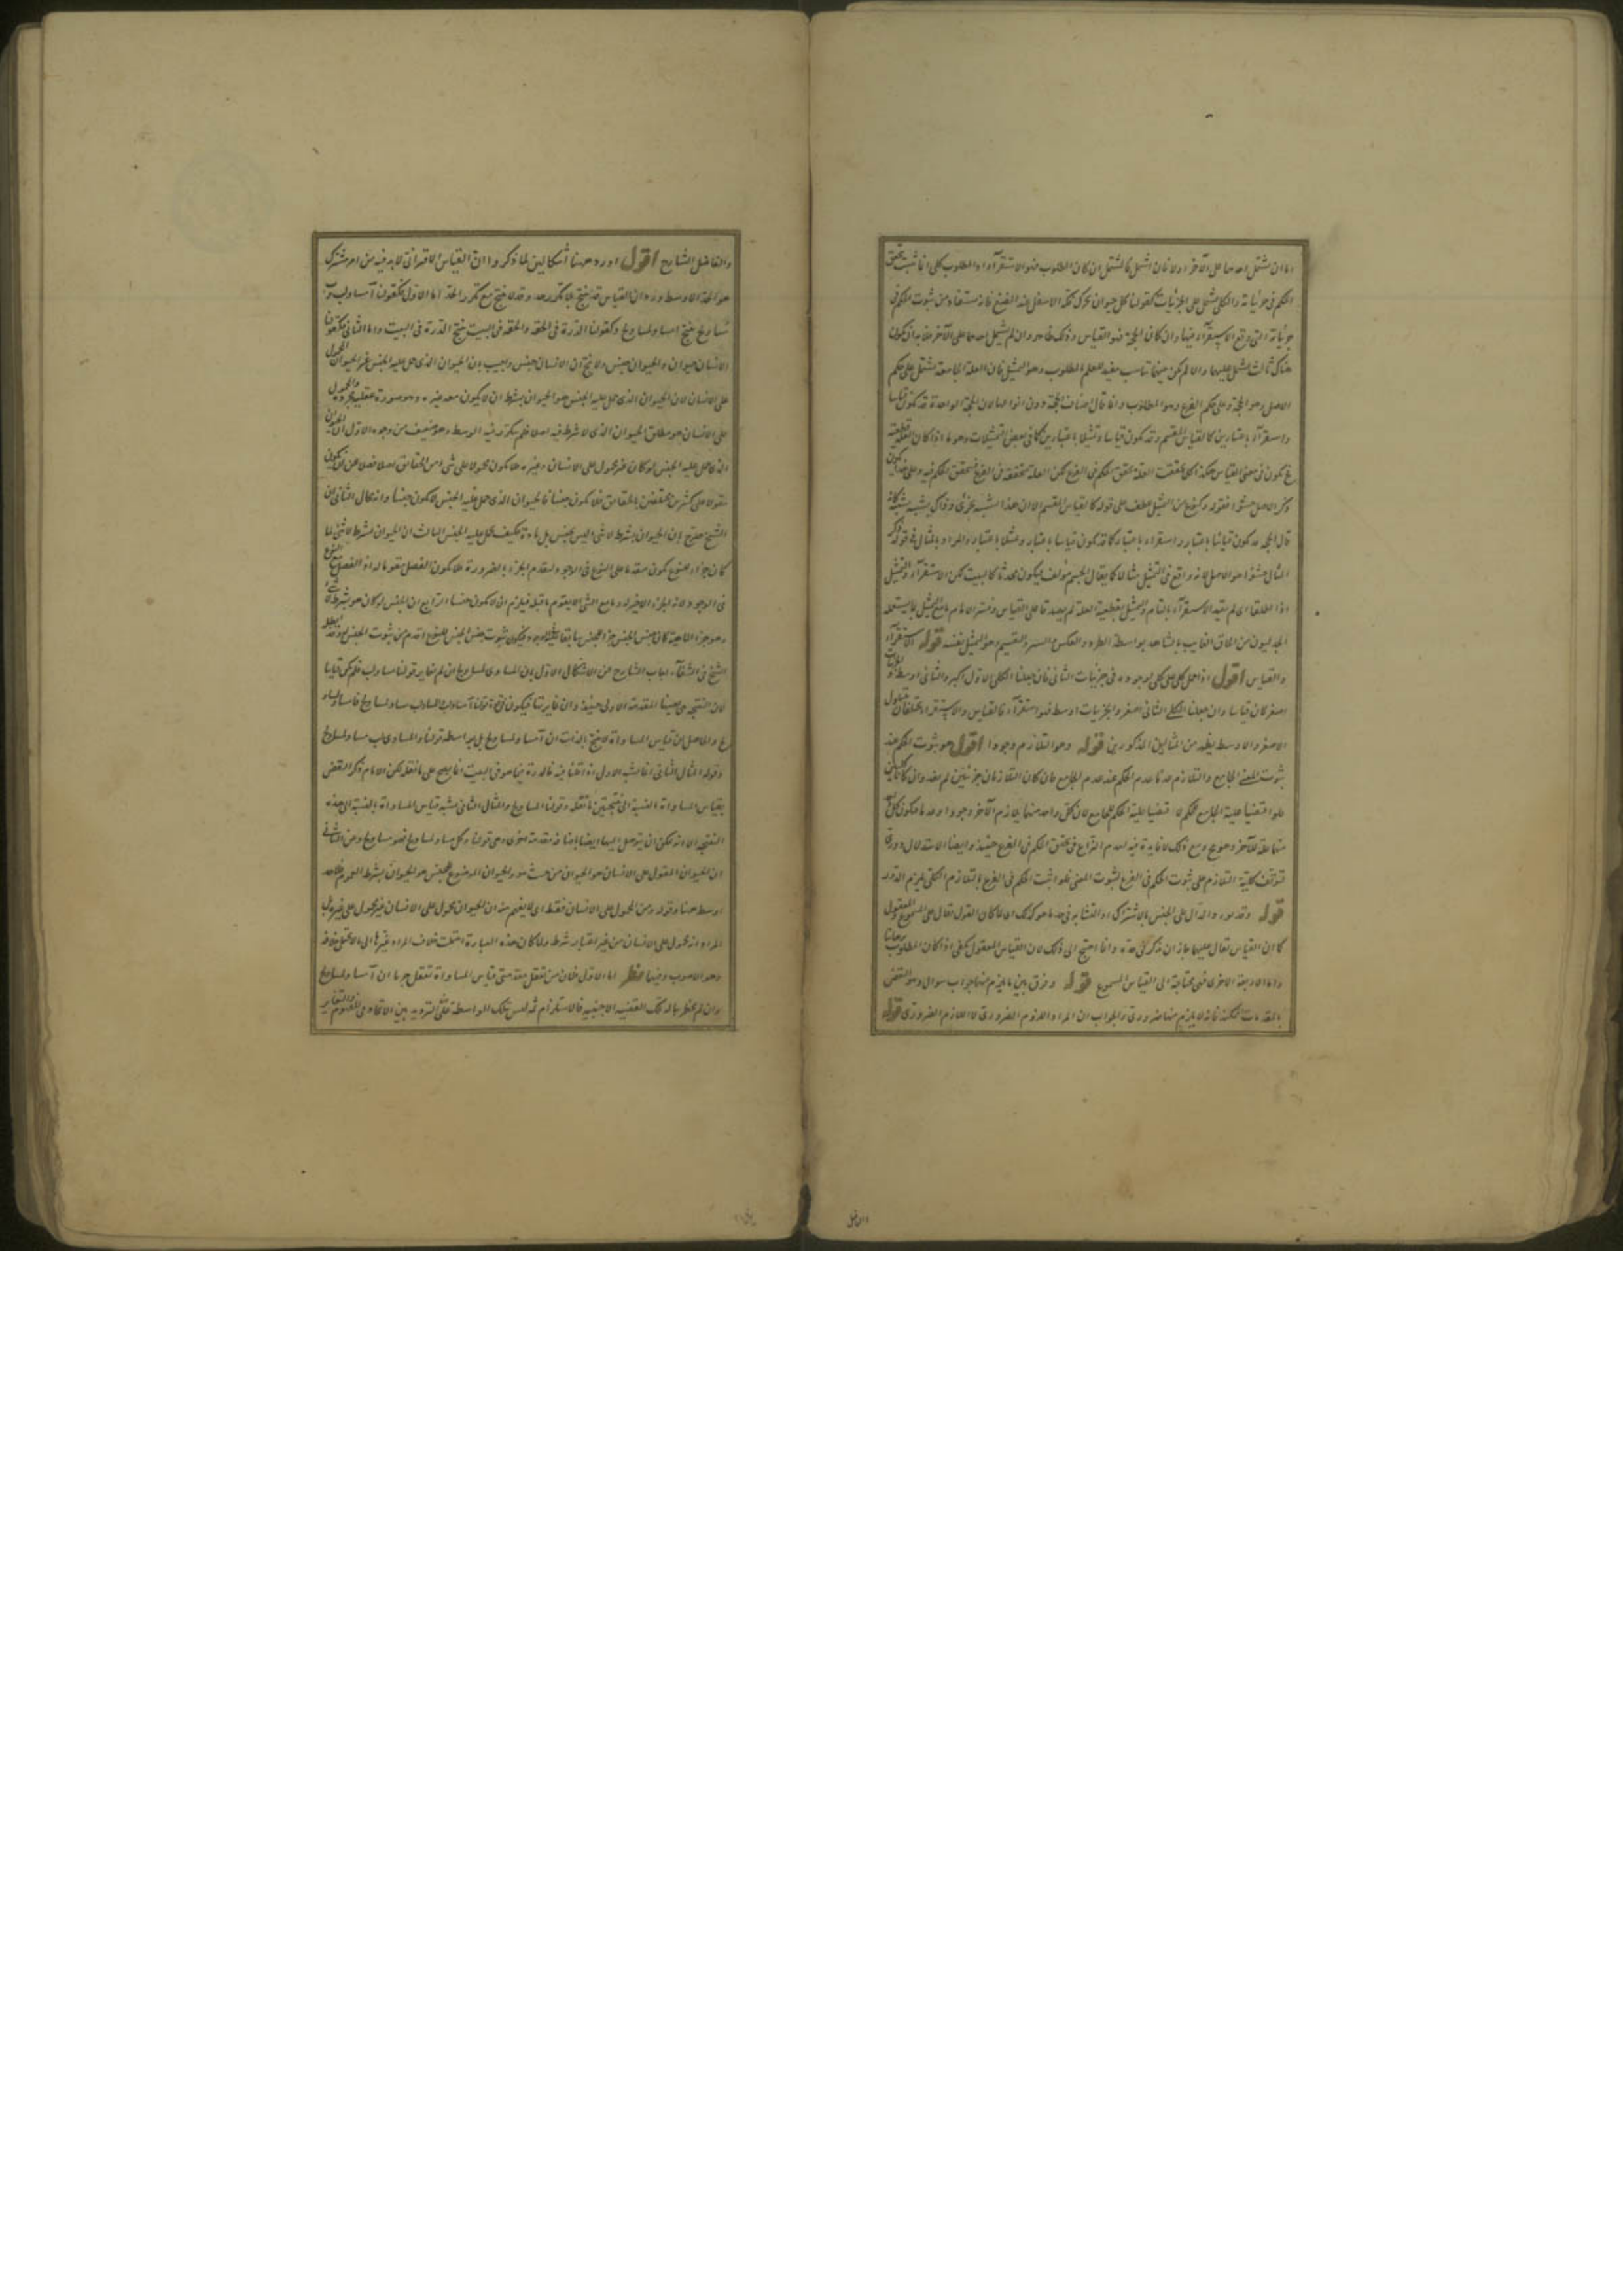 اما ان يشتمل احدهما على الآخر اولا فان اشتمل فالمشتمل ان كان المطلوب فهو الاستقرآء اذ المطلوب كلى انما يثبت بتحقق
الحكم فى جزئياته والكلى مشتمل على الجزئيات كقولنا كل حيوان يحرك فكه الاسفل عند المضغ فانه مستفاد من ثبوت الحكم فى
جزئياته التى وقع الاستقرآء فيها وان كان الحجة فهو القياس وذلك ظاهر وان لم يشتمل احدهما على الآخر فلا بد ان يكون
هناك ثالث يشتمل عليهما والا لم يكن بينهما تناسب مفيد للعلم بالمطلوب وهو التمثيل فان العلة الجامعة تشتمل على حكم
الاصل وهو الحجة وعلى حكم الفرع وهو المطلوب وانما قال اصناف الحجة دون انواعها لان الحجة الواحدة قد تكون قياسا
واستقرآء باعتبارين كالقياس المقسم وقد يكون قياسا وتمثيلا باعتبارين كما فى بعض التمثيلات وهو ما اذا كان العلة قطعية
يكون فى معنى القياس هكذا كلما تحققت العلة تحقق الحكم فى الفرع لكن العلة متحققة فى الفرع فيتحقق الحكم فيه وعلى هذا يكون
ذكر الاصل حشوا فقوله وكنوع من التمثيل عطف على قوله كالقياس المقسم الا ان هذا
قال الحجة قد يكون قياسا باعتبار واستقراء باعتبار كما قد يكون قياسا باعتبار وتمثيلا باعتبار والمراد بالمثال فى قوله
المثال حشوا هو الاصل لانه واقع فى التمثيل مثالا كما يقال الجسم مؤلف فيكون محدثا كالبيت لكن الاستقرآء والتمثيل
اذا اطلقا اى لم يقيد الاستقرآء بالتام والتمثيل بقطعية العلة لم يصدقا على القياس وفسر الامام التمثيل بما يستعمله
الجدليون من الحاق الغايب بالشاهد بواسطة الطرد والعكس والسبر والتقسيم وهو التمثيل نفسه قوله الاستقرآء
والقياس اقول اذا حمل كلى على كلى لوجوده فى جزئيات الثانى فان جعلنا الكلى الاول اكبر والثانى اوسط والجزئيات
اصغر كان قياسا وان جعلنا الكلى الثانى اصغر والجزئيات اوسط فهو استقرآء فالقياس والاستقراء يختلفان بتبادل
الاصغر والاوسط يظهر من المثالين المذكورين قوله وهو التلازم وجودا اقول هو ثبوت الحكم عند
ثبوت المعنى الجامع والتلازم عدما عدم الحكم عند عدم الجامع فان كان التلازمان جزئيين لم يفد وان كانا كليين
فلو اقتضيا علية الجامع للحكم لاقتضيا علية الحكم للجامع لان كل واحد منهما يلازم الآخر وجودا وعدما فيكون كل
منهما علة للآخر وهو مح ومع ذلك لا فايدة فيه لعدم النزاع فى تحقق الحكم فى الفرع حينئذ وايضا الاستدلال دورى
لتوقف كلية التلازم على ثبوت الحكم فى الفرع لثبوت المعنى فلو اثبت الحكم فى الفرع بالتلازم الكلى يلزم الدور
قوله وقد يورد الدال على الجنس بالاشتراك او التشابه فى حد ما هو كذلك اى لما كان القول يقال على المسموع والمعقول
كما ان القياس يقال عليهما جاز ان يذكر فى حده وانما احتيج الى ذلك لان القياس المعقول يكفى اذا كان المطلوب برهانيا
واما الاربعة الاخرى فهى محتاجة الى القياس المسموع قوله وفرق بين ما يلزم عنها جواب سوال وهو النقض
بالمقدمات الممكنة فانه لا يلزم منها ضرورى والجواب ان المراد اللزوم الضرورى لا اللازم الضرورى قوله
والفاضل
والفاضل الشارح اقول اورد ههنا اشكالين لما ذكروا ان القياس الاقترانى لابد فيه من امر مشترك
هو الحد الاوسط ورد ان القياس قد ينتج بلا تكرر حد وقد لا ينتج مع تكرر الحد اما الاول فكقولنا آ مساو لب وب
مساو لج ينتج آ مساو لمساوى ج وكقولنا الدرة فى الحقة والحقة فى البيت ينتج الدرة فى البيت واما الثانى فكقولنا
الانسان حيوان والحيوان جنس ولا ينتج ان الانسان جنس واجيب بان الحيوان الذى حمل عليه الجنس غير الحيوان المحمول
على الانسان لان الحيوان الذى حمل عليه الجنس هو الحيوان بشرط ان لا يكون معه غيره وهو صورة عقلية مجردة والمحمول
على الانسان هو مطلق الحيوان الذى لا شرط فيه اصلا فلم يتكرر فيه الوسط وهو ضعيف من وجوه الاول ان الحيوان
الذى حمل عليه الجنس لو كان غير محمول على الانسان وغيره فلا يكون محمولا على شئ من الحقائق اصلا فضلا عن ان يكون
مقولا على كثيرين مختلفين بالحقائق فلا يكون جنسا فالحيوان الذى حمل عليه الجنس لا يكون جنسا وانه محال الثانى ان
الشيخ صرح بان الحيوان بشرط لا شئ ليس بجنس بل مادة فكيف حمل عليه الجنس الثالث ان الحيوان بشرط لا شئ لما
كان جزءا للنوع يكون مقدما على النوع فى الوجود لتقدم الجزء بالضرورة فلا يكون الفصل مقوما له اذ الفصل مع النوع
فى الوجود لانه الجزء الاخير له وما مع الشئ لا يقوم ما قبله فيلزم ان لا يكون جنسا الرابع ان الجنس لو كان هو بشرط لا شئ
وهو جزء الماهية كان جنس الجنس جزء للجنس سابقا عليه فى الوجود فيكون ثبوت جنس الجنس للنوع اقدم من ثبوت الجنس له وقد ابطله
الشيخ فى الشفآء اجاب الشارح عن الاشكال الاول بان المساوى لمساوى ج ان لم يغاير قولنا مساو لب فلم يكن قياسا
لان النتيجة هى بعينها المقدمة الاولى حينئذ وان غايرتها فيكون فى قوة قولنا
والحاصل ان قياس المساواة لا ينتج بالذات ان آ مساو لمساوى ج بل بواسطة قولنا والمساوى لب مساو لمساوى ج
وقوله المثال الثانى انما يشبه الاول اذ
بقياس المساواة بالنسبة الى نتيجتين ما نقله وقولنا آ مساو لج والمثال الثانى يشبه قياس المساواة بالنسبة الى هذه
النتيجة الا انه يمكن ان يتوصل اليها ايضا باضافة مقدمة اخرى وهى قولنا وكل مساو لمساوى ج فهو مساو لج وعن الثانى
ان الحيوان المقول على الانسان هو الحيوان من حيث هو والحيوان الموضوع للجنس هو الحيوان بشرط العموم فلا حد
اوسط ههنا وقوله ومن المحمول على الانسان فقط اى لا يفهم منه ان الحيوان محمول على الانسان غير محمول على غيره بل
المراد انه محمول على الانسان من غير اعتبار شرط ولما كان هذه العبارة احتملت خلاف المراد غيرها الى ما لا يحتمل خلافه
وهو الاصوب وفيهما نظر اما الاول فلان من يتعقل مقدمتى قياس المساواة تعقل جزما ان آ مساو لمساوى ج
وان لم يخطر بباله تلك القضية الاجنبية فالاستلزام ثمه ليس بتلك الواسطة